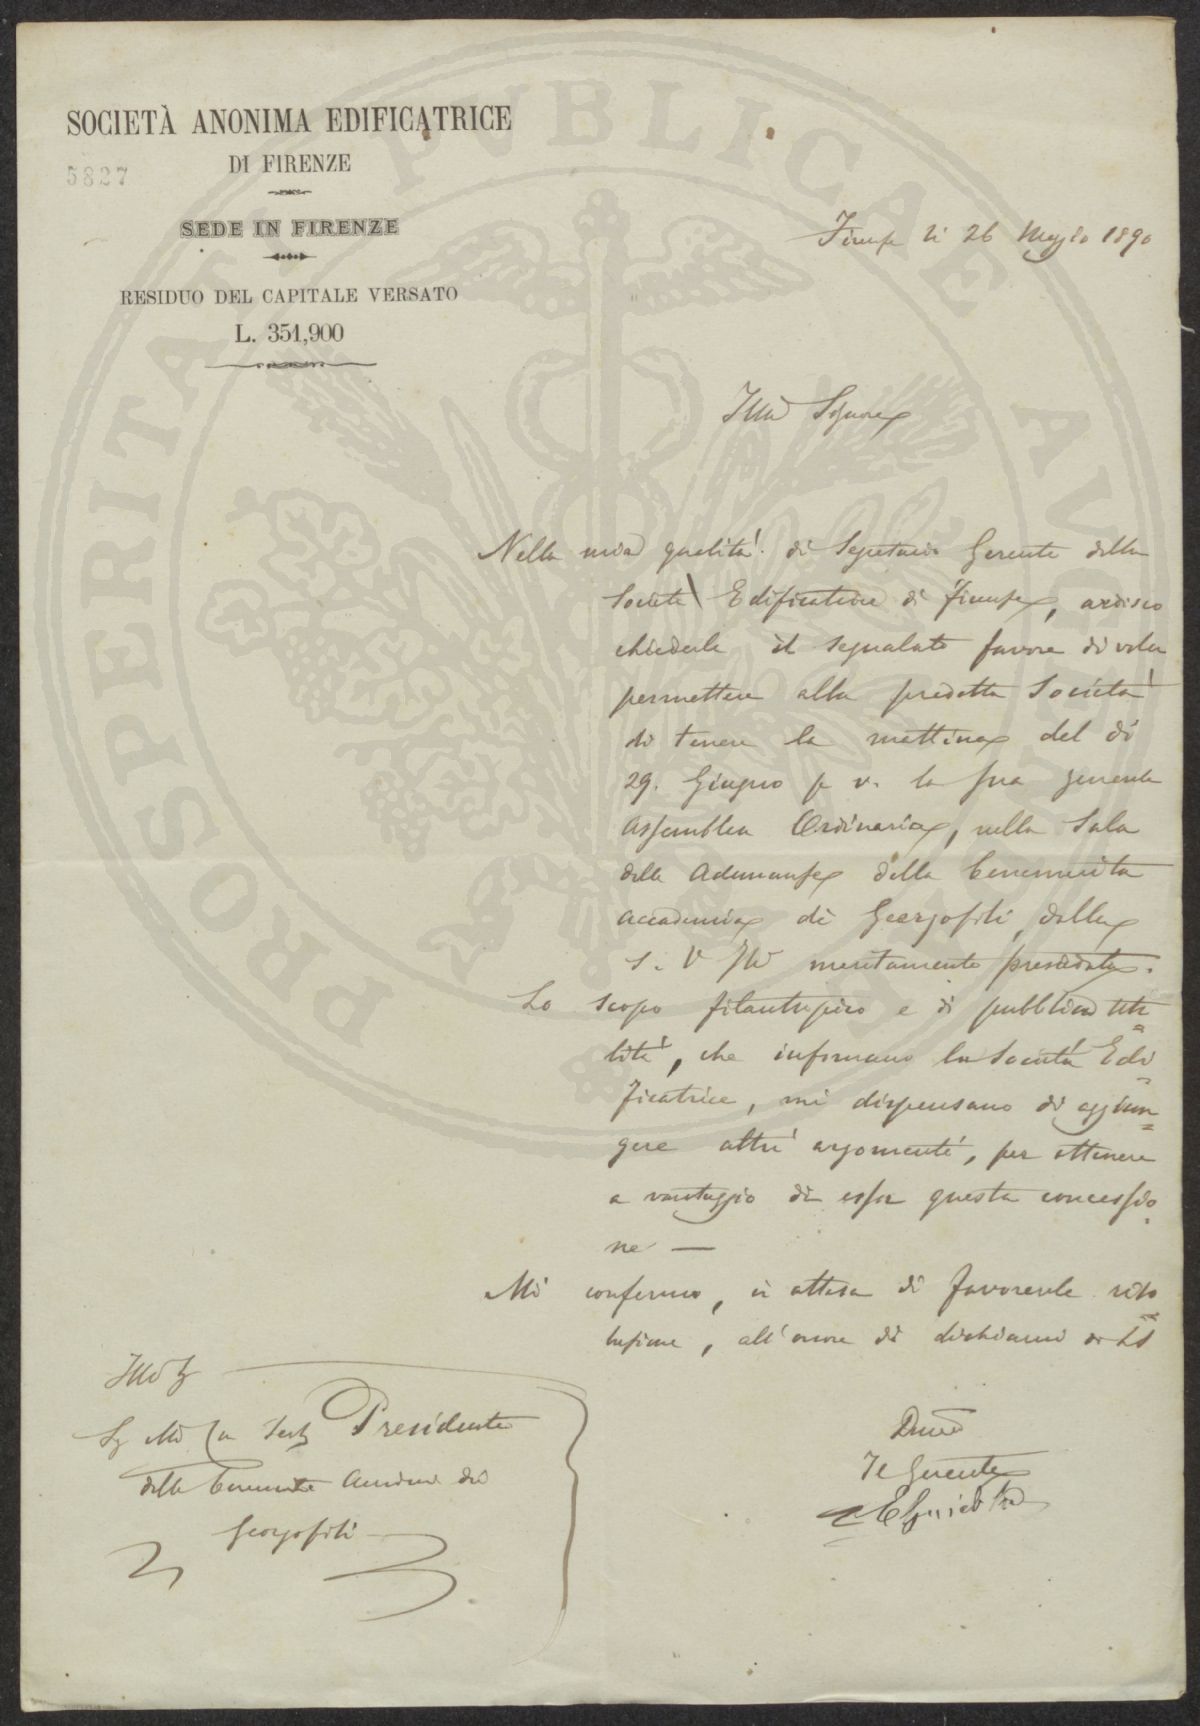 SOCIETÀ ANONIMA EDIFICATRICE
DI FIRENZE
5827
SEDE IN FIRENZE
RESIDUO DEL CAPITALE VERSATO
L. 351,900
PROSPERITATI PVBLICAE AVGENDAE
Firenze li 26 Maggio 1890
Illmo Signore
Nella mia qualità di Segretario Gerente della
Società Edificatrice di Firenze, ardisco
chiederle il segnalato favore di voler
permettere alla predetta Società
di tenere la mattina del dì
29. Giugno p v. la sua generale
Assemblea Ordinaria, nella Sala
delle Adunanze della benemerita
Accademia dei Georgofili, dalla
S. V Illma meritamente presieduta.
Lo scopo filantropico e di pubblica uti=
lità, che informano la Società Edi=
ficatrice, mi dispensano di aggiun=
gere altri argomenti, per ottenere
a vantaggio di essa questa concessio=
ne —
Mi confermo, in attesa di favorevole riso=
luzione, all'onore di dichiararmi di LS
Devmo
Il Gerente
Illmo
Presidente
della Benemerita Accademia dei
Georgofili